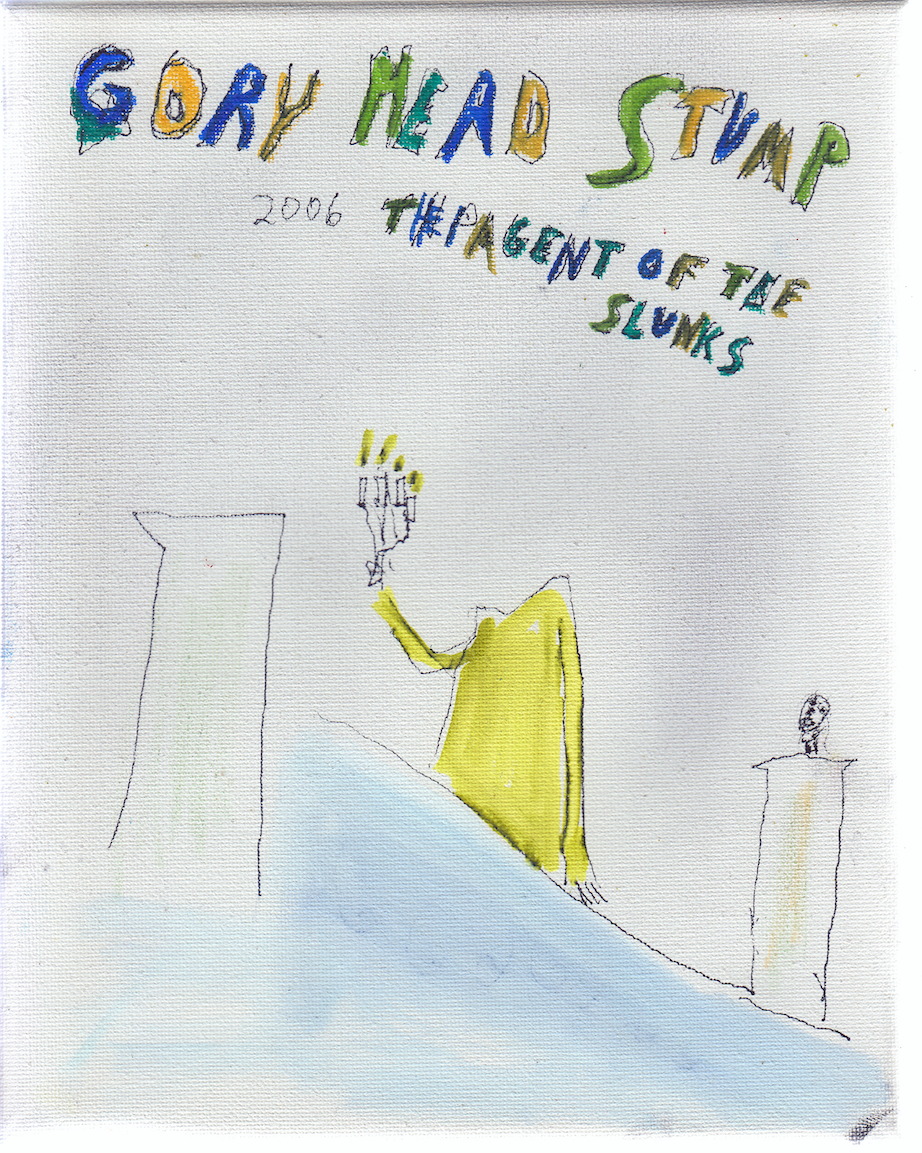 GORY HEAD STUMP
2006 THE PAGENT OF THE
SLUNKS